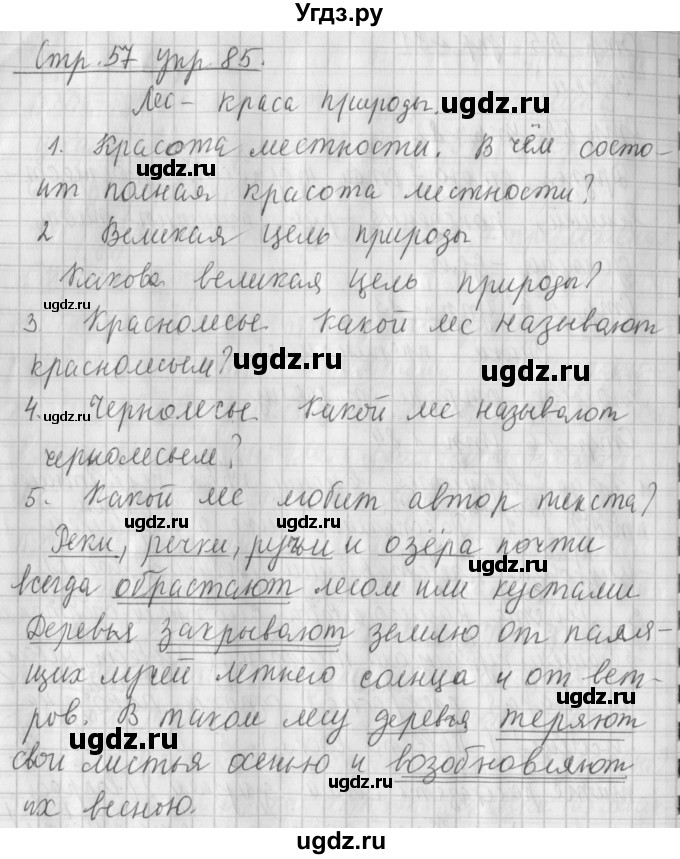 Угдз.ру
Стр. 57 упр. 85.
Лес - краса природы.
ugdz.ru
1. Красота местности. В чём состо-
ugdz.ru
ит полная красота местности?
2 Великая цель природы
Какова великая цель природы?
ugdz.ru
3. Краснолесье. Какой лес называют
краснолесьем?
ugdz.ru
ugdz.ru
4. Чернолесье. Какой лес называют
ugdz.ru
чернолесьем?
5. Какой лес любит автор текста?
ugdz.ru
ugdz.ru
Реки, речки, ручьи и озёра почти
ugdz.ru
всегда обрастают лесом или кустами
Деревья закрывают землю от паля-
щих лучей летнего солнца и от вет-
ugdz.ru
ров. В таком лесу деревья теряют
ugdz.ru
свои листья осенью и возобновляют
ugdz.ru
их весною.
ugdz.ru